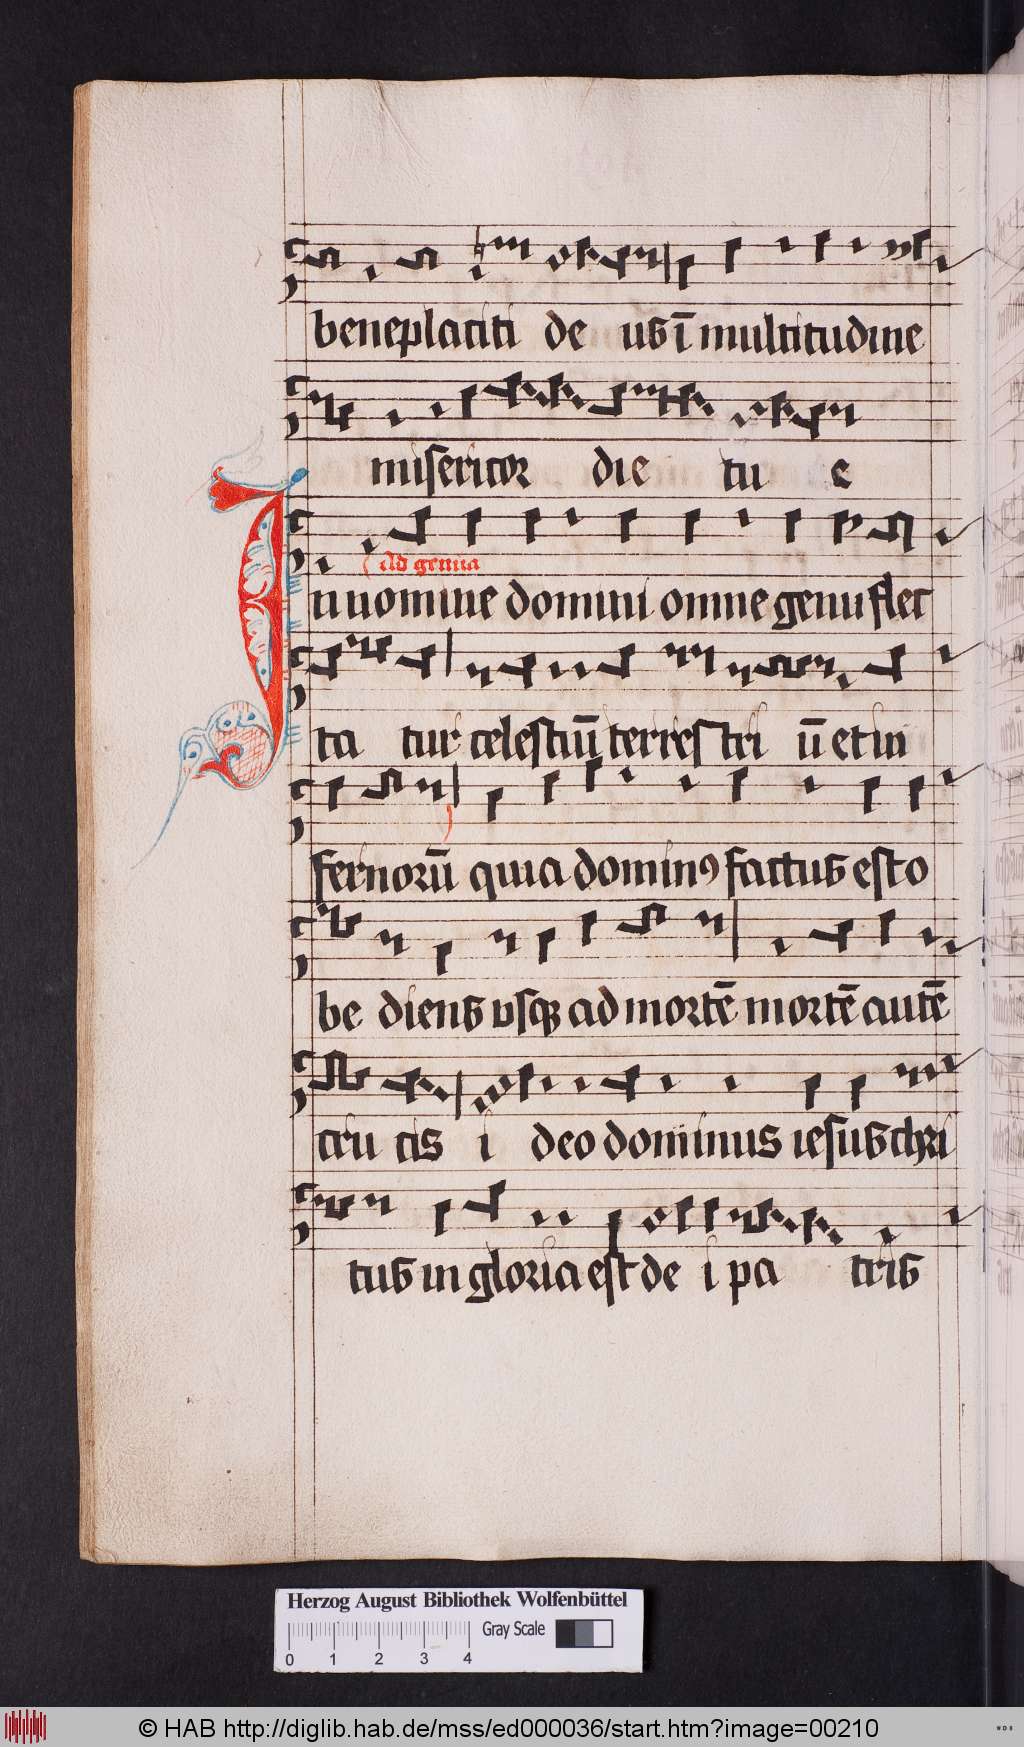 beneplaciti de us ī multitudine
misericor die tu e
Ad genua
In nomine domini omne genu flec
ta tur celestiū terres tri ū et in
fernorū quia dominꝰ factus est o
be diens usqꝫ ad mortē mortē autē
cru cis i deo dominus iesus chri
tus in gloria est de i pa tris
Herzog August Bibliothek Wolfenbüttel
Gray Scale
0 1 2 3 4
© HAB http://diglib.hab.de/mss/ed000036/start.htm?image=00210